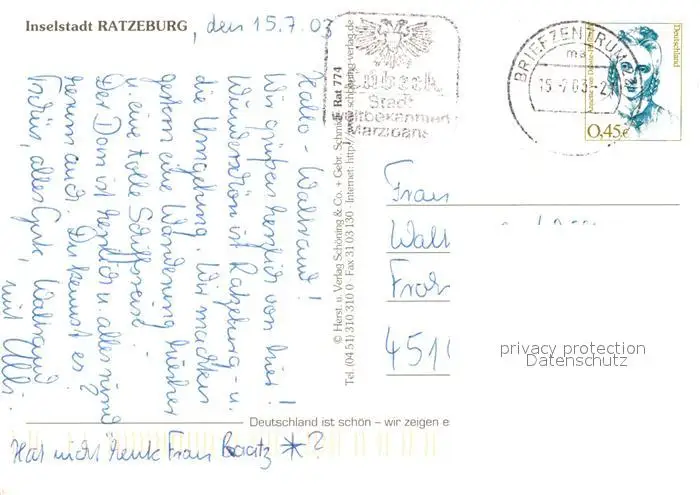 Inselstadt RATZEBURG, den 15.7.03
Hallo - Waltraud!
Wir grüßen herzlich von hier!
Wunderschön ist Ratzeburg u.
die Umgebung. Wir machten
gestern eine Wanderung hierher
u. eine tolle Schiffsreise.
Der Dom ist herrlich u. alles rund
herum auch. Du kennst es
Tschüs, alles Gute, Waltraud
mit
Hat nicht heute Frau Baatz * ?
© Herst. u. Verlag Schöning & Co. + Gebr. Schmidt
Tel. (04 51) 310 310 0 · Fax 31 03 130 · Internet: http://www.schoening-verlag.de
Rat 774
Lübeck
Stadt
weltbekannten
Marzipans
BRIEFZENTRUM 23
ma
15-7.03-21
Deutschland
0,45€
Frau
Walt
Froh
4510
privacy protection
Datenschutz
Deutschland ist schön – wir zeigen e